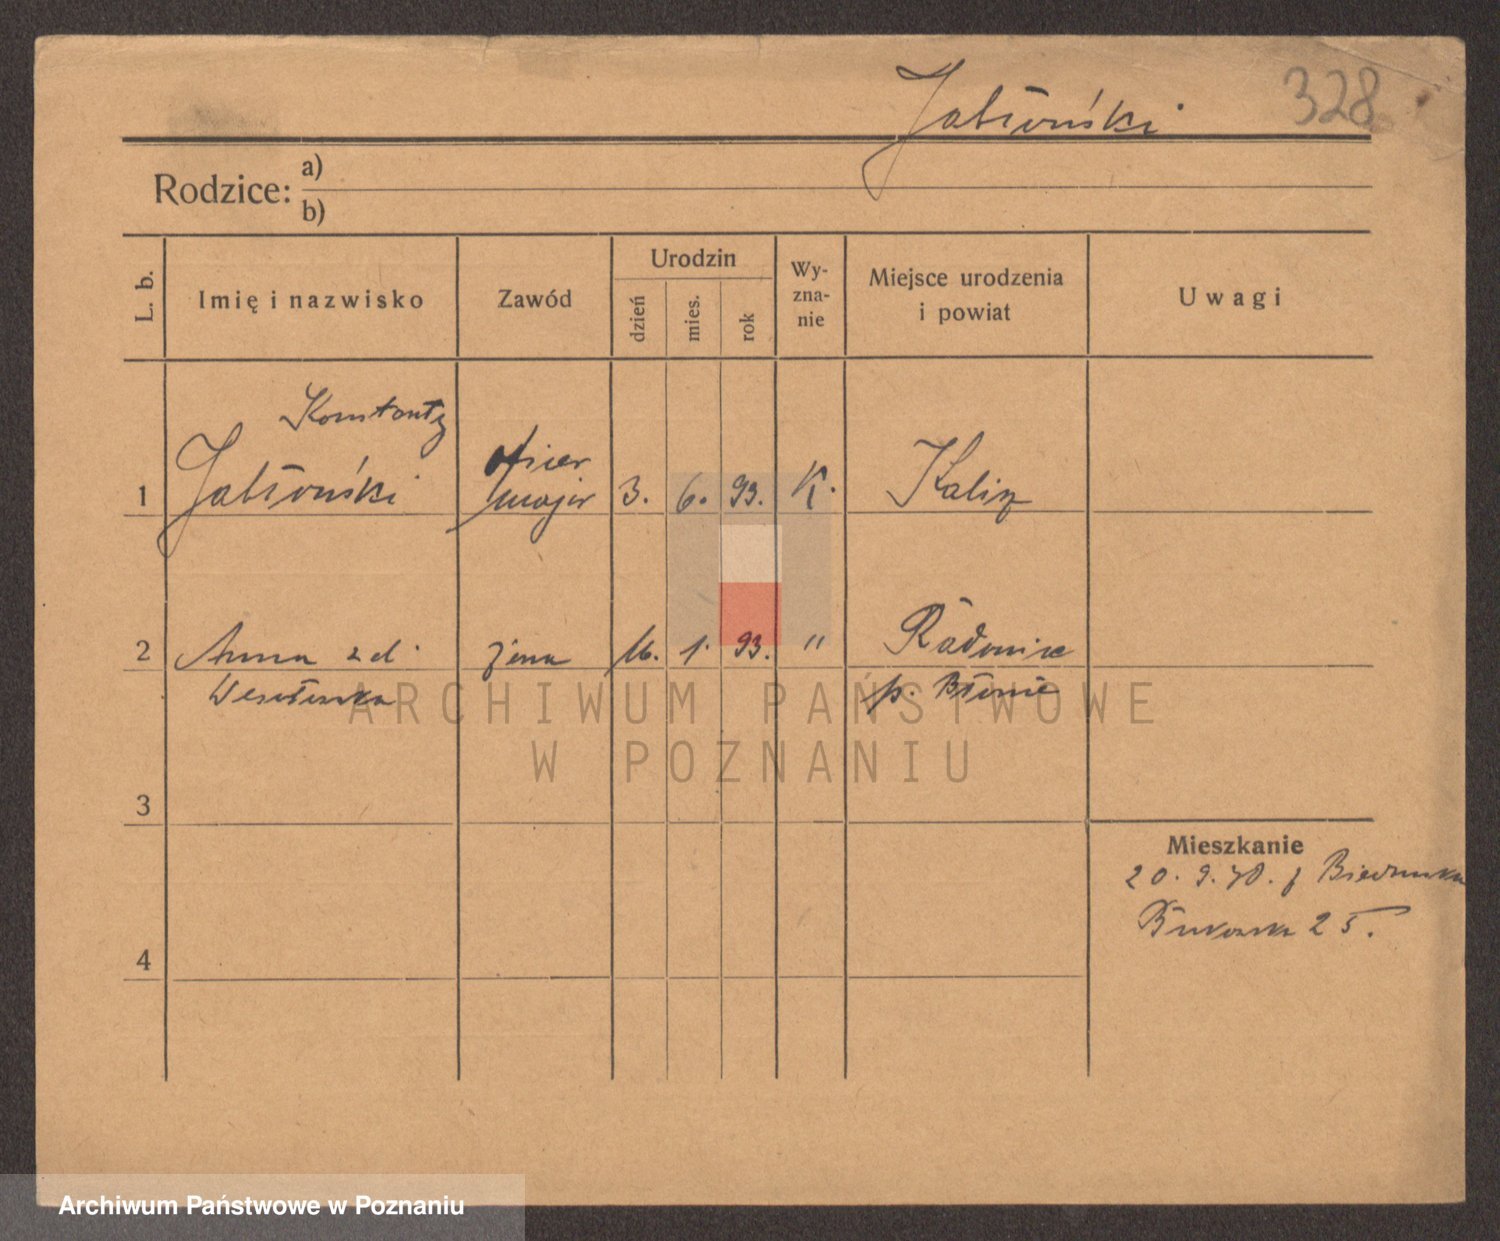 Jabłoński
328
Rodzice: a)
b)
L. b.
Imię i nazwisko
Zawód
Urodzin
dzień
mies.
rok
Wy-
zna-
nie
Miejsce urodzenia
i powiat
Uwagi
Konstanty
1 Jabłoński oficer major 3. 6. 93. K. Kalisz
2 Anna z d. żona 1. 93. " Radonice
p. Błonie
ARCHIWUM PAŃSTWOWE
W POZNANIU
3
Mieszkanie
20. 9. z Biedruska
Bukowska 25.
4
Archiwum Państwowe w Poznaniu